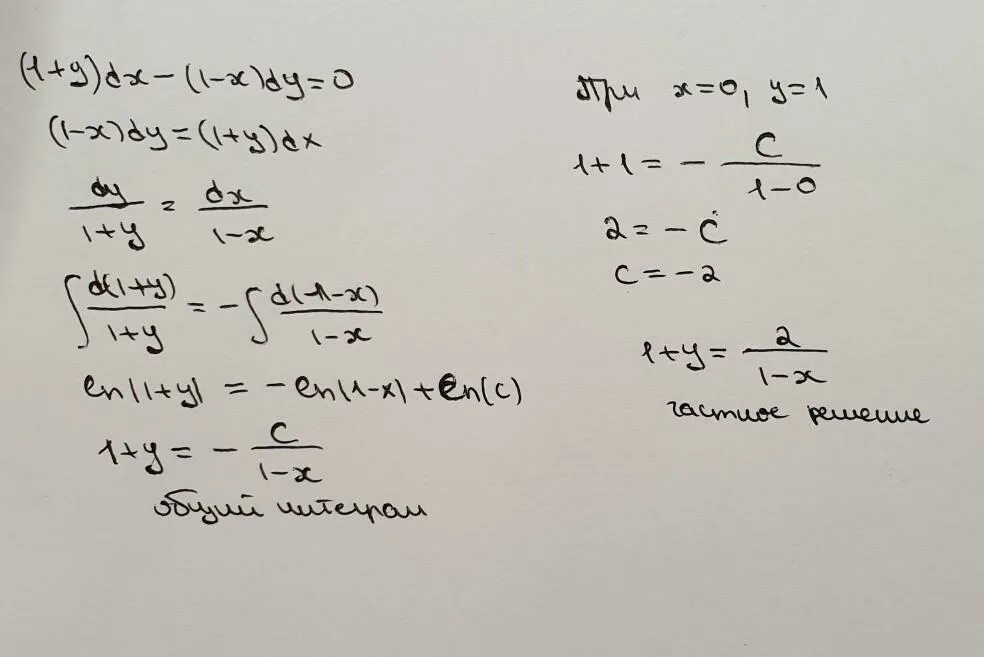 (1+y)dx-(1-x)dy=0
(1-x)dy=(1+y)dx
dy/(1+y) = dx/(1-x)
∫ d(1+y)/(1+y) = -∫ d(-1-x)/(1-x)
ln|1+y| = -ln|1-x|+ln(c)
1+y = - C/(1-x)
общий интеграл
При x=0, y=1
1+1 = - C/(1-0)
2 = -C
C = -2
1+y = 2/(1-x)
частное решение